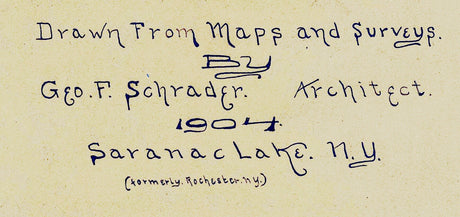 Drawn From Maps and Surveys.
By
Geo. F. Schrader. Architect.
1904.
Saranac Lake. N.Y.
(formerly. Rochester. N.Y.)